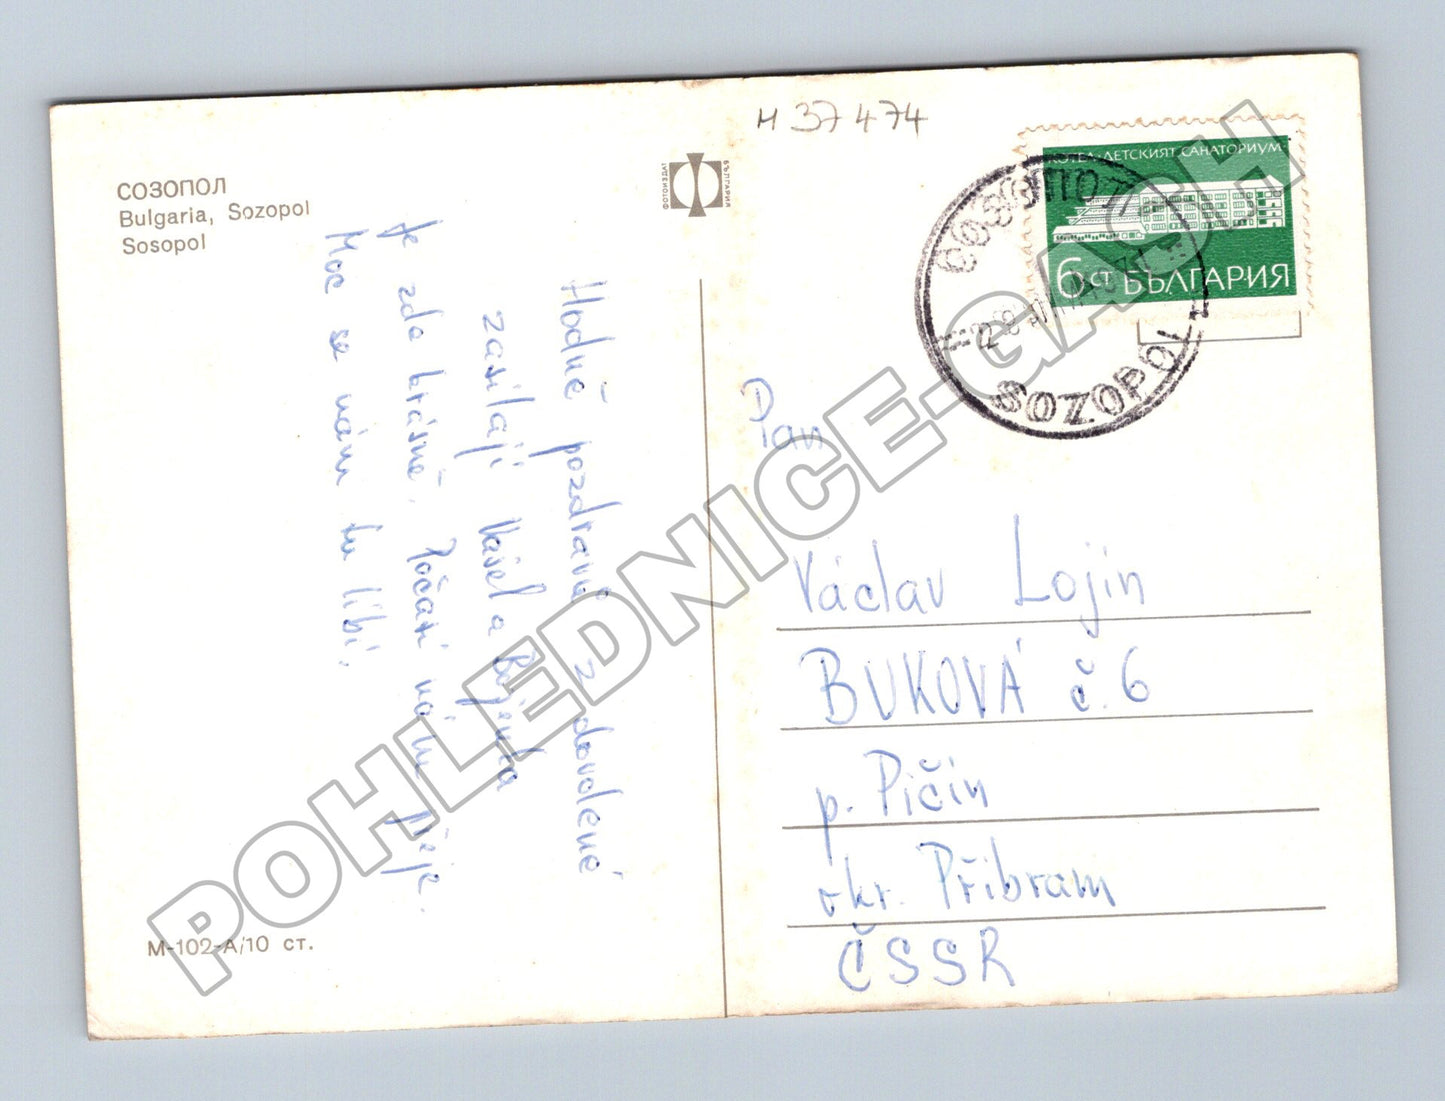 M 37474
СОЗОПОЛ
Bulgaria, Sozopol
Sosopol
ФОТОИЗДАТ
БЪЛГАРИЯ
Hodně pozdravů z dovolené
zasílají Vašel a Boženka
Je zde krásně, Počasí nám přeje.
Moc se nám tu líbí.
М-102-А/10 ст.
КОТЕЛ·ДЕТСКИЯТ САНАТОРИУМ
6 СТ БЪЛГАРИЯ
СОЗОПОЛ
SOZOPOL
Pan
Václav Lojin
BUKOVÁ č. 6
p. Pičín
okr. Příbram
ČSSR
POHLEDNICE-GASH